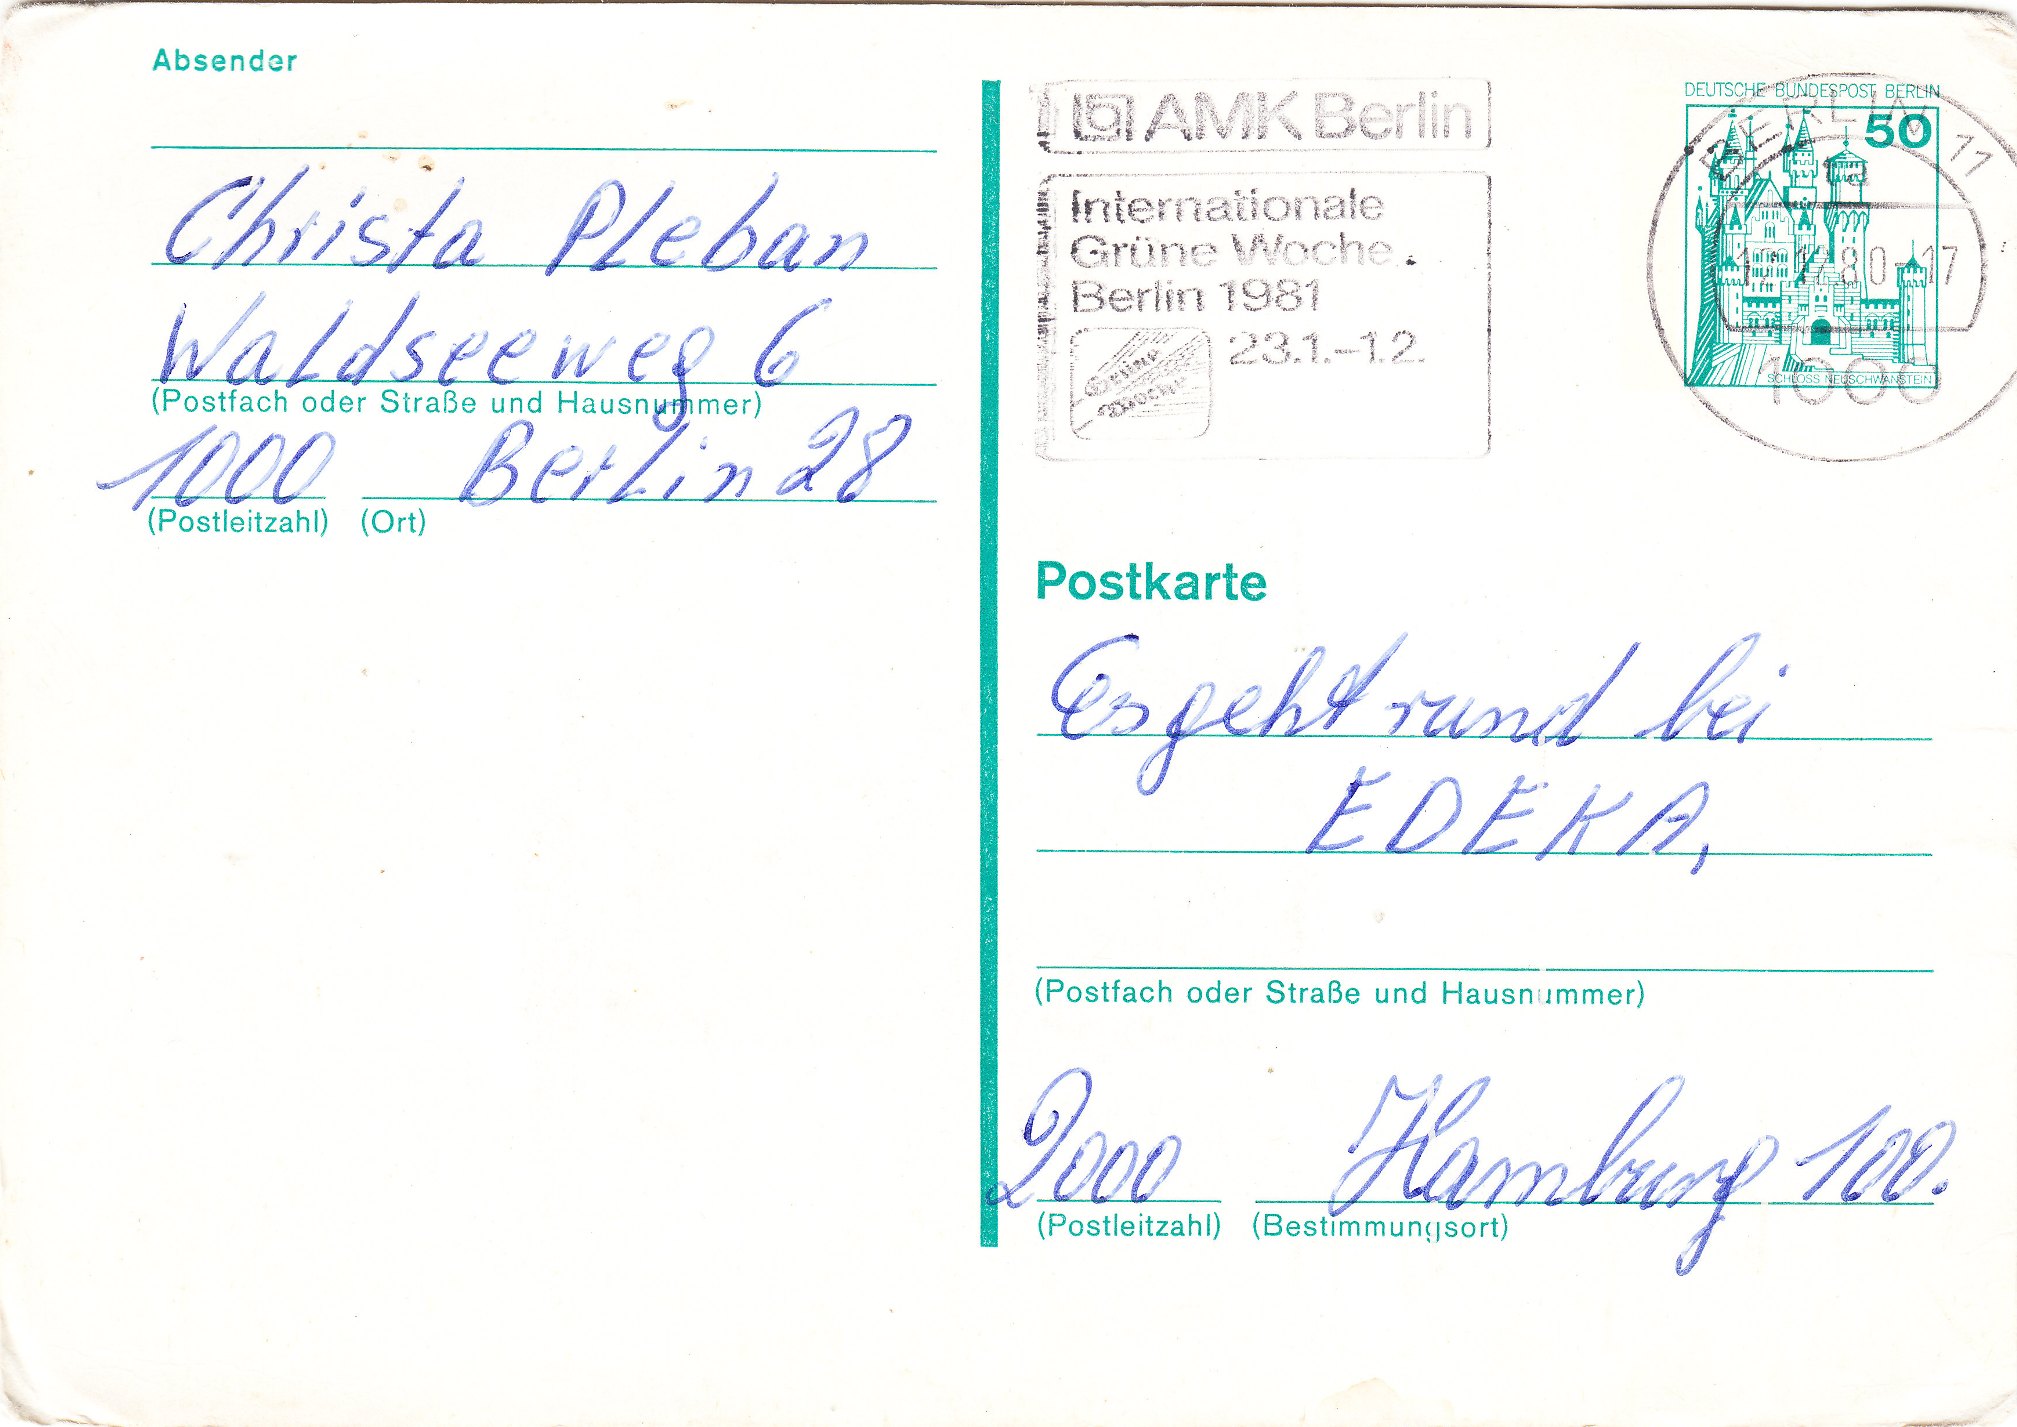 Absender
Christa Pleban
Waldseeweg 6
(Postfach oder Straße und Hausnummer)
1000 Berlin 28
(Postleitzahl) (Ort)
AMK Berlin
Internationale
Grüne Woche
Berlin 1981
23.1.–1.2.
Grüne
Woche
DEUTSCHE BUNDESPOST BERLIN
50
SCHLOSS NEUSCHWANSTEIN
BERLIN 11
80-17
1000
Postkarte
Es geht rund bei
EDEKA,
(Postfach oder Straße und Hausnummer)
2000 Hamburg 100.
(Postleitzahl) (Bestimmungsort)